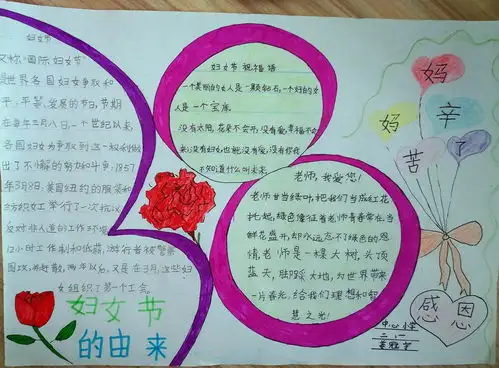 妇女节
又称"国际妇女节"
是世界各国妇女争取和
平、平等、发展的节日,节期
在每年三月八日,一个世纪以来,
各国妇女为争取到这一权利做
出了不懈的努力和斗争,1857
年3月8日,美国纽约的服装和
纺织女工举行了一次抗议,
反对非人道的工作环境,
12小时工作制和低薪,游行者被警察
围攻,并赶散,两年以后,又是在3月,这些妇
女组织了第一个工会
妇女节
的由来
妇女节祝福语
一个美丽的女人是一颗钻石,一个好的女
人是一个宝库
没有太阳,花朵不会开,没有爱,幸福不会
来,没有妇女也就没有爱,没有你我
不知道什么叫未来
老师,我爱您!
老师甘当绿叶,把我们当成红花
托起,绿色象征着老师青春常在,当
鲜花盛开,却永远忘不了绿色的恩
情,老师是一棵大树,头顶
蓝天,脚踩大地,为世界带来
一片春光,给我们理想和智
慧之光!
妈
妈
辛
苦
了
感恩
中心小学
二、一